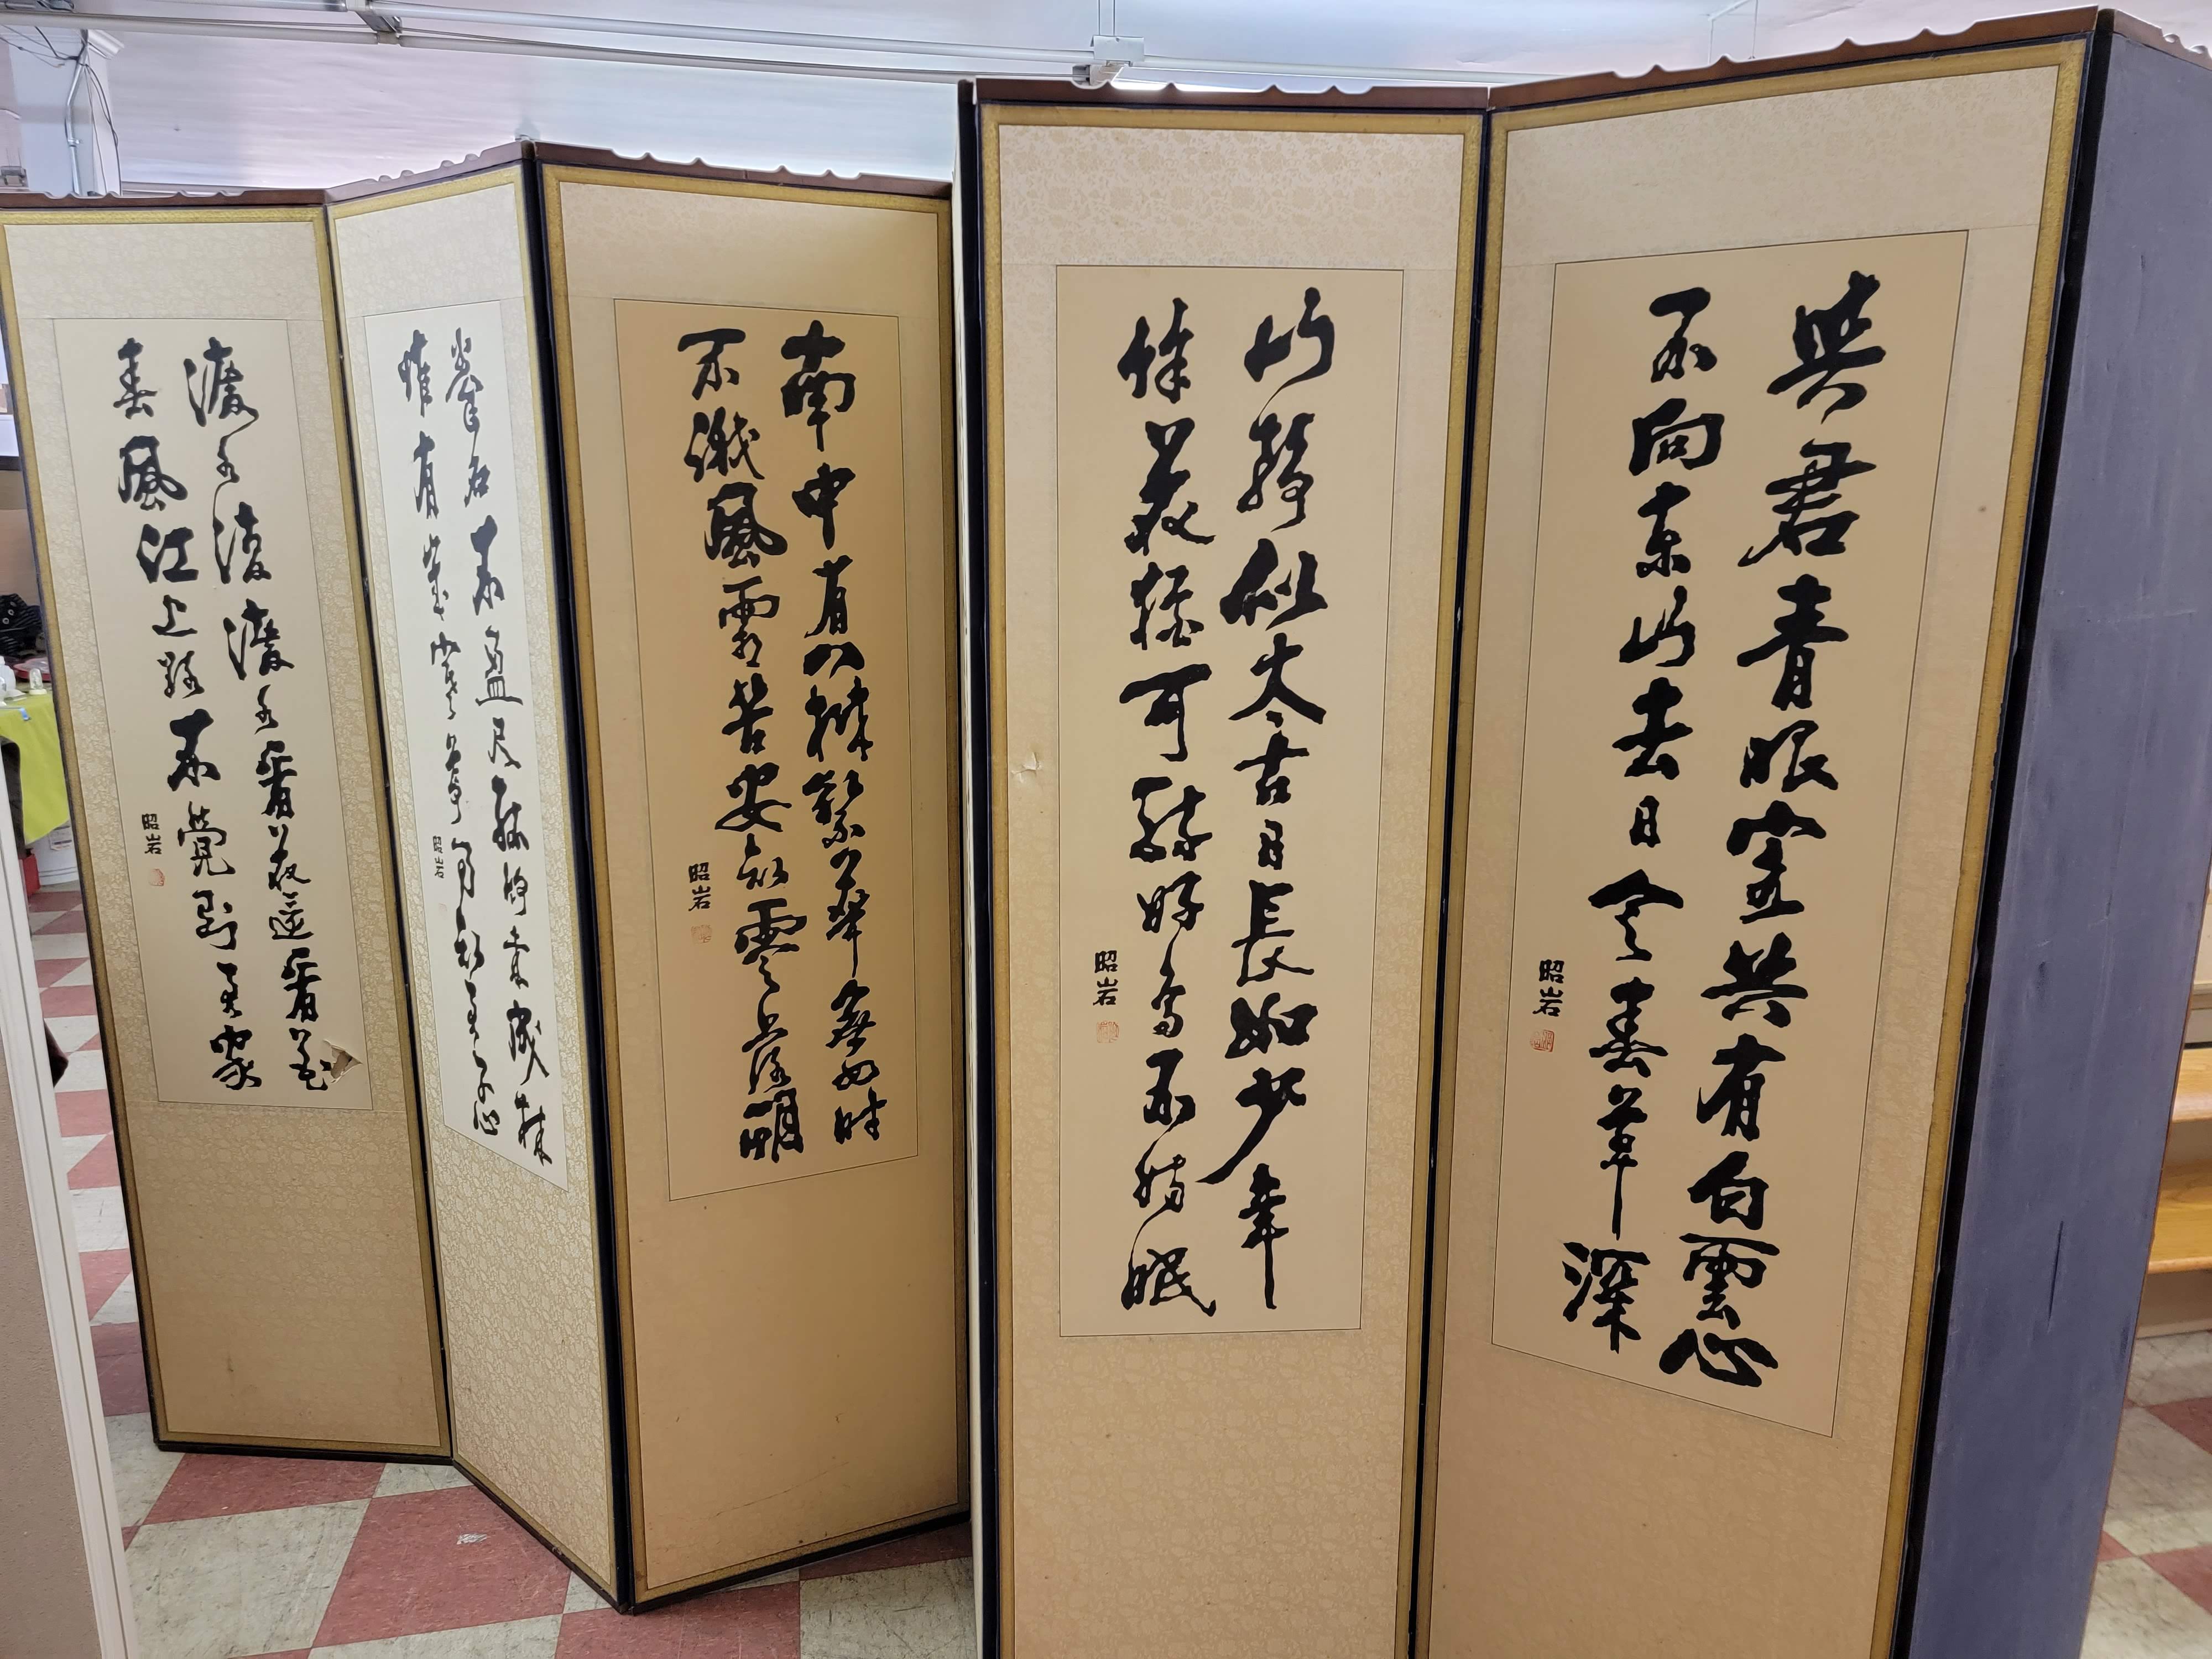 與君青眼客共有白雲心
不向東山去日令春草深
昭岩
山靜似太古日長如少年
餘花猶可醉好鳥不妨眠
昭岩
南中有八樹繁華無四時
不識風霜苦安知零落期
昭岩
拳石不盈尺孤竹不成林
惟有歲寒節乃知君子心
昭岩
渡水復渡水看花還看花
春風江上路不覺到君家
昭岩